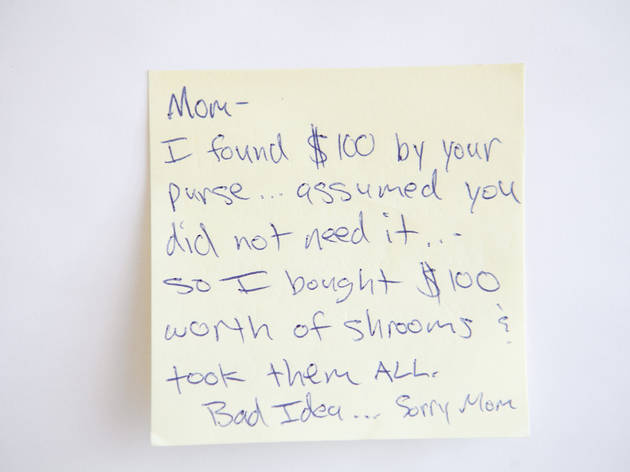 Mom-
I found $100 by your
purse... assumed you
did not need it...
so I bought $100
worth of shrooms &
took them ALL.
Bad Idea... Sorry Mom